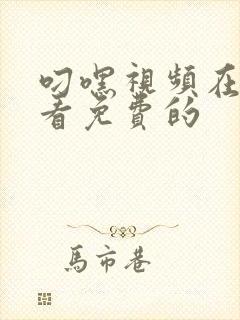 叼嘿視頻在
看免費的
馬市巷